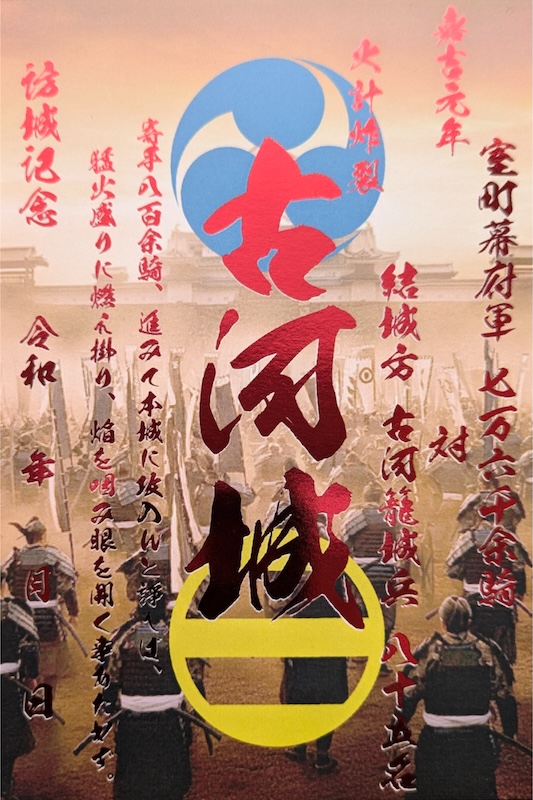 嘉吉元年
室町幕府軍 七万六千余騎
対
結城方 古河籠城兵 八十五名
火計炸裂
古河城
寄手八百余騎、進みて本城に攻め入んと諍しは、
猛火盛りに燃え掛り、焔を咽み眼を開く事もたやす。
訪城記念 令和 年 月 日